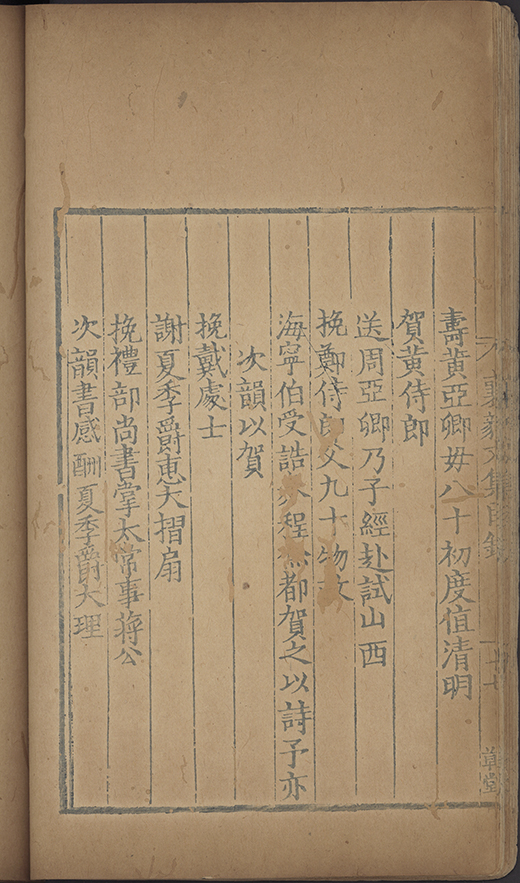 壽黄亞卿母八十初度值清明
賀黄侍郎
送周亞卿乃子經赴試山西
挽鄭侍郎父九十物故
海寧伯受誥 程 都賀之以詩予亦
次韻以賀
挽戴處士
謝夏季爵惠大摺扇
挽禮部尚書掌太常事蔣公
次韻書感酬夏季爵大理
文集目録
草堂